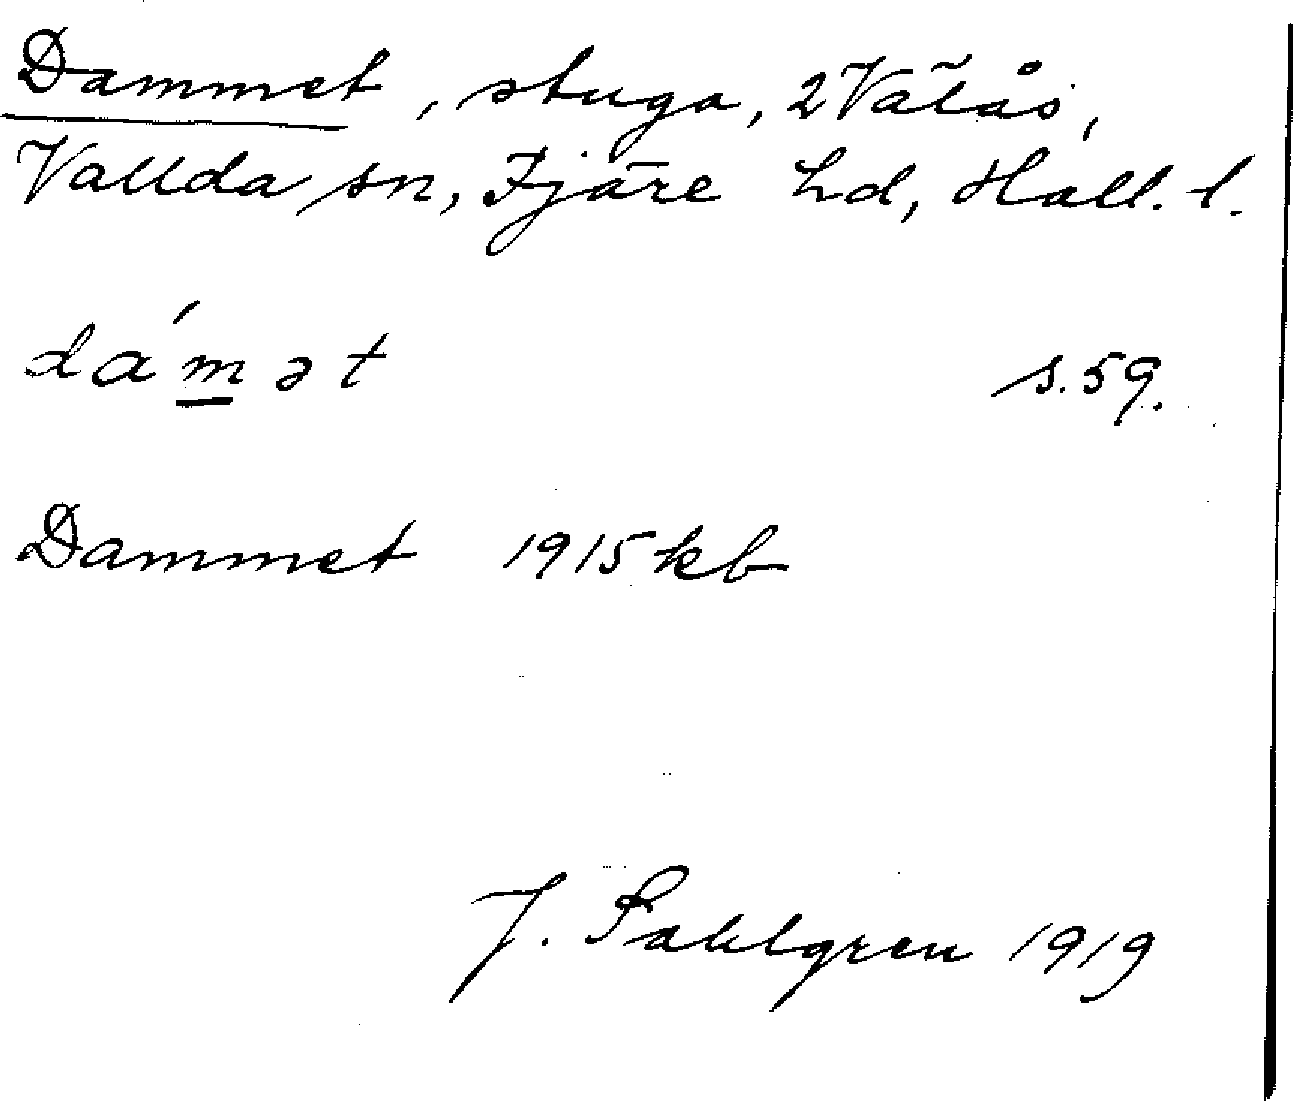 Dammet, stuga, 2 Välås,
Vallda sn, Fjäre hd, Hall. l.
dám̲ət s. 59.
Dammet 1915 kb
J. Sahlgren 1919